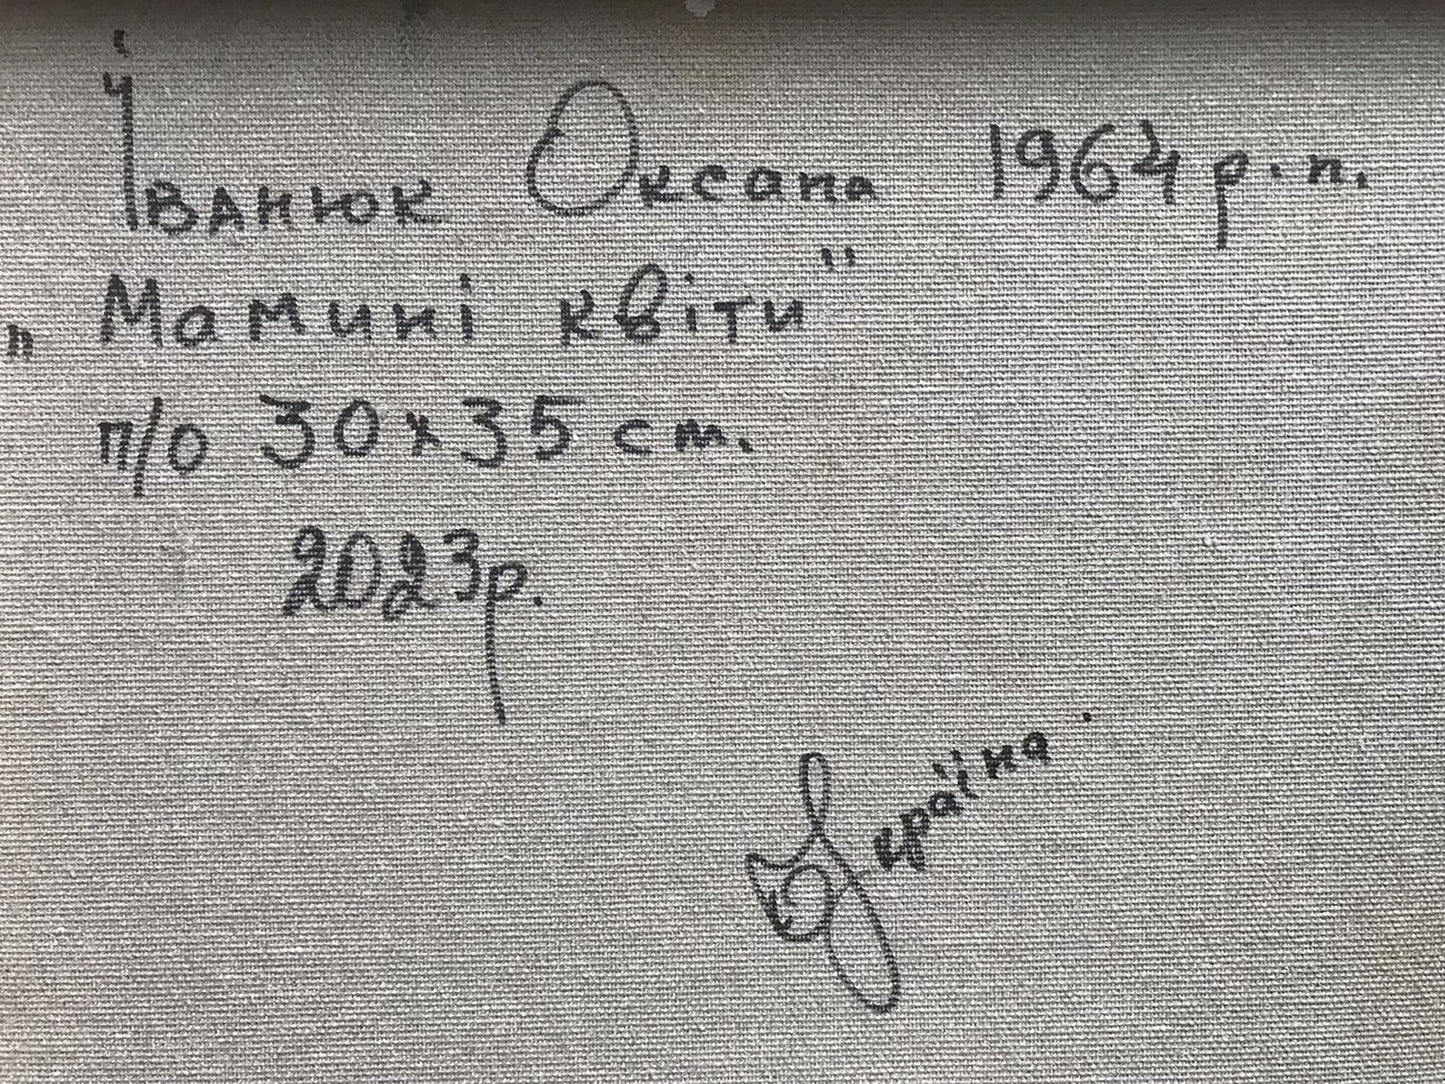 Іванюк Оксана 1964 р.н.
„Мамині квіти"
п/о 30х35 см.
2023р.
Україна.